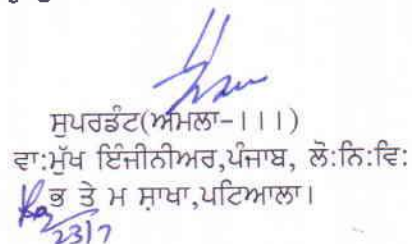 ਸੁਪਰਡੰਟ(ਅਮਲਾ-।।।)
ਵਾ:ਮੁੱਖ ਇੰਜੀਨੀਅਰ,ਪੰਜਾਬ, ਲੋ:ਨਿ:ਵਿ:
ਭ ਤੇ ਮ ਸ਼ਾਖਾ,ਪਟਿਆਲਾ।
23/7